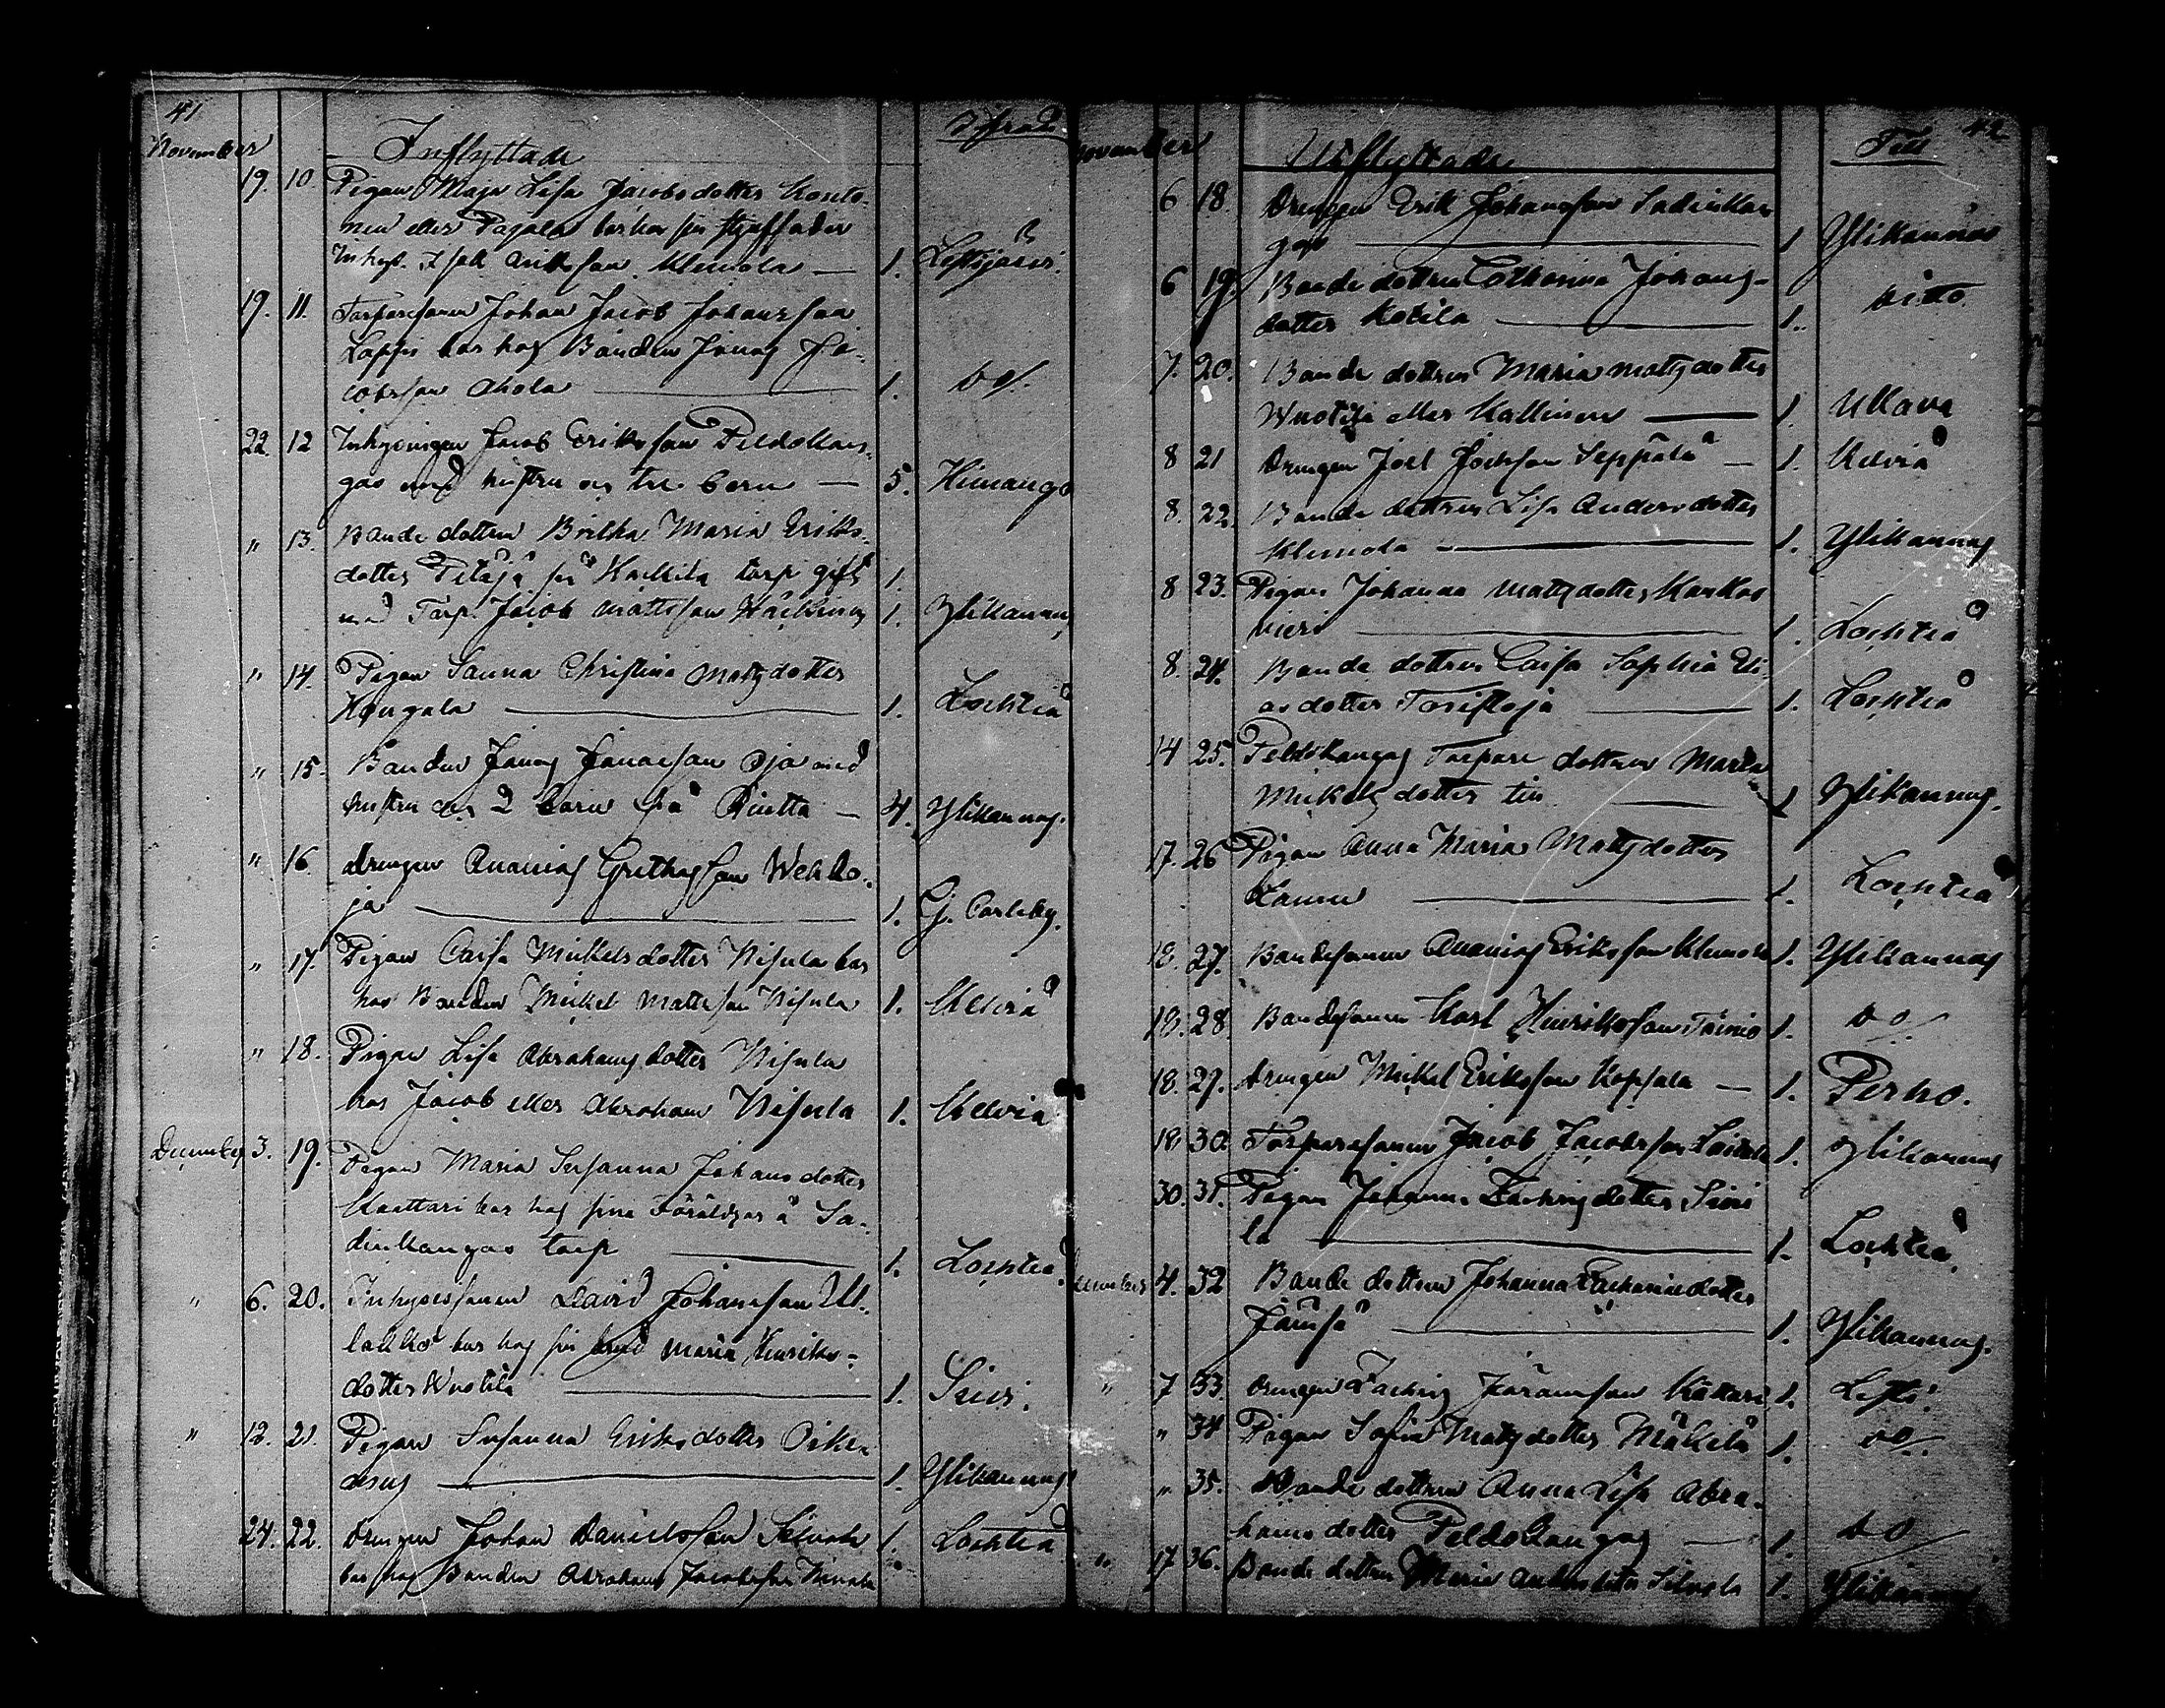 41
November Inflyttade Ifrån
19. 10. Pigan Maja Lisa Jacobsdotter Konto-
nen eller Pajala bor hos sin styffader
Inhys. Isak Anttesson Klemola — 1. Lestijärvi.
19. 11. Torparesonen Johan Jacob Johansson
Lappi bor hos Bonden Jonas Ja-
cobsson Ahola — 1. do/.
22. 12 Inhysingen Jacob Eriksson Peldokan-
gas med hustru och tre barn — 5. Himango
" 13. Bonde dottren Britha Maria Eriks-
dotter Petäjä på Harkila torp gift 1.
med Torp. Jacob Mattsson Härkinen 1. Ylikannus
" 14. Pigan Sanna Christina Matsdotter
Hongala — 1. Lochteå
" 15. Bonden Jonas Jonasson Oja med
hustru och 2 barn på Riutta — 4. Ylikannus.
" 16. drengen Ananias Grethasson Wehko-
ja — 1. G. Carleby.
" 17. Pigan Caisa Mickelsdotter Nisula bor
hos Bonden Mickel Mattsson Nisula 1. Kelviå
" 18. Pigan Lisa Abrahamsdotter Nisula
hos Jacob eller Abraham Nisula 1. Kelviå
December 3. 19. Pigan Maria Susanna Johansdotter
Kaattari bor hos sina Föräldrar å Sa-
dinkangas torp — 1. Lochteå
" 6. 20. Inhysessonen David Johansson Ul-
lakko bor hos sin brud Maria Henriks-
dotter Wuotila — 1. Sievi.
" 12. 21. Pigan Susanna Eriksdotter
— 1. Ylikannus
24. 22. drengen Johan Danielsson 1. Lochteå
bor hos Bonden Abraham Jacobsson
42
November Utflyttade Till
6 18. Drengen Erik Johansson Sadinkan-
gas — 1 Ylikannus
6 19. Bonde dottren Catharina Johans-
dotter Kotila — 1. ditto
7. 20. Bonde dottren Maria Matsdotter
Wuotila eller Kallinen — 1. Ullava
8 21 Drengen Joel Joelsson Seppälä — 1. Kelviå
8. 22. Bonde dottren Lisa Andersdotter
Klemola — 1. Ylikannus
8 23. Pigan Johanna Matsdotter Karkas
— 1. Lochteå
8. 24. Bonde dottren Caisa Sophia Eli-
asdotter Toristoja — 1. Lochteå
14 25. Peldokangas Torpare dottren Maria
Mickelsdotter — 1 Ylikannus.
17. 26 Pigan Anna Maria Matsdotter
— 1. Lochteå
18. 27. Bondesonen Ananias Eriksson Klemola 1. Ylikannus
18. 28. Bondesonen Karl Henriksson Töimio 1. do/.
18. 29. drengen Mickel Eriksson Koppala — 1. Perho.
18. 30. Torparesonen Jacob Jacobsson 1. Ylikannus
30. 31. Pigan Johanna Zachrisdotter Siiri
la — 1. Lochteå.
December 4. 32 Bonde dottren Johanna Zachariedotter
Jämsä — 1. Ylikannus.
" 7 33. drengen Zachris Jöransson Kattari 1. Lesti.
" 34 Pigan Sofia Matsdotter Mäkelä 1. do/.
" 35. Bonde dottren Anna Lisa Abra-
hamsdotter Peldokangas — 1. do/
" 17 36. Bonde dottren Maria Andersdotter 1. Ylikannus